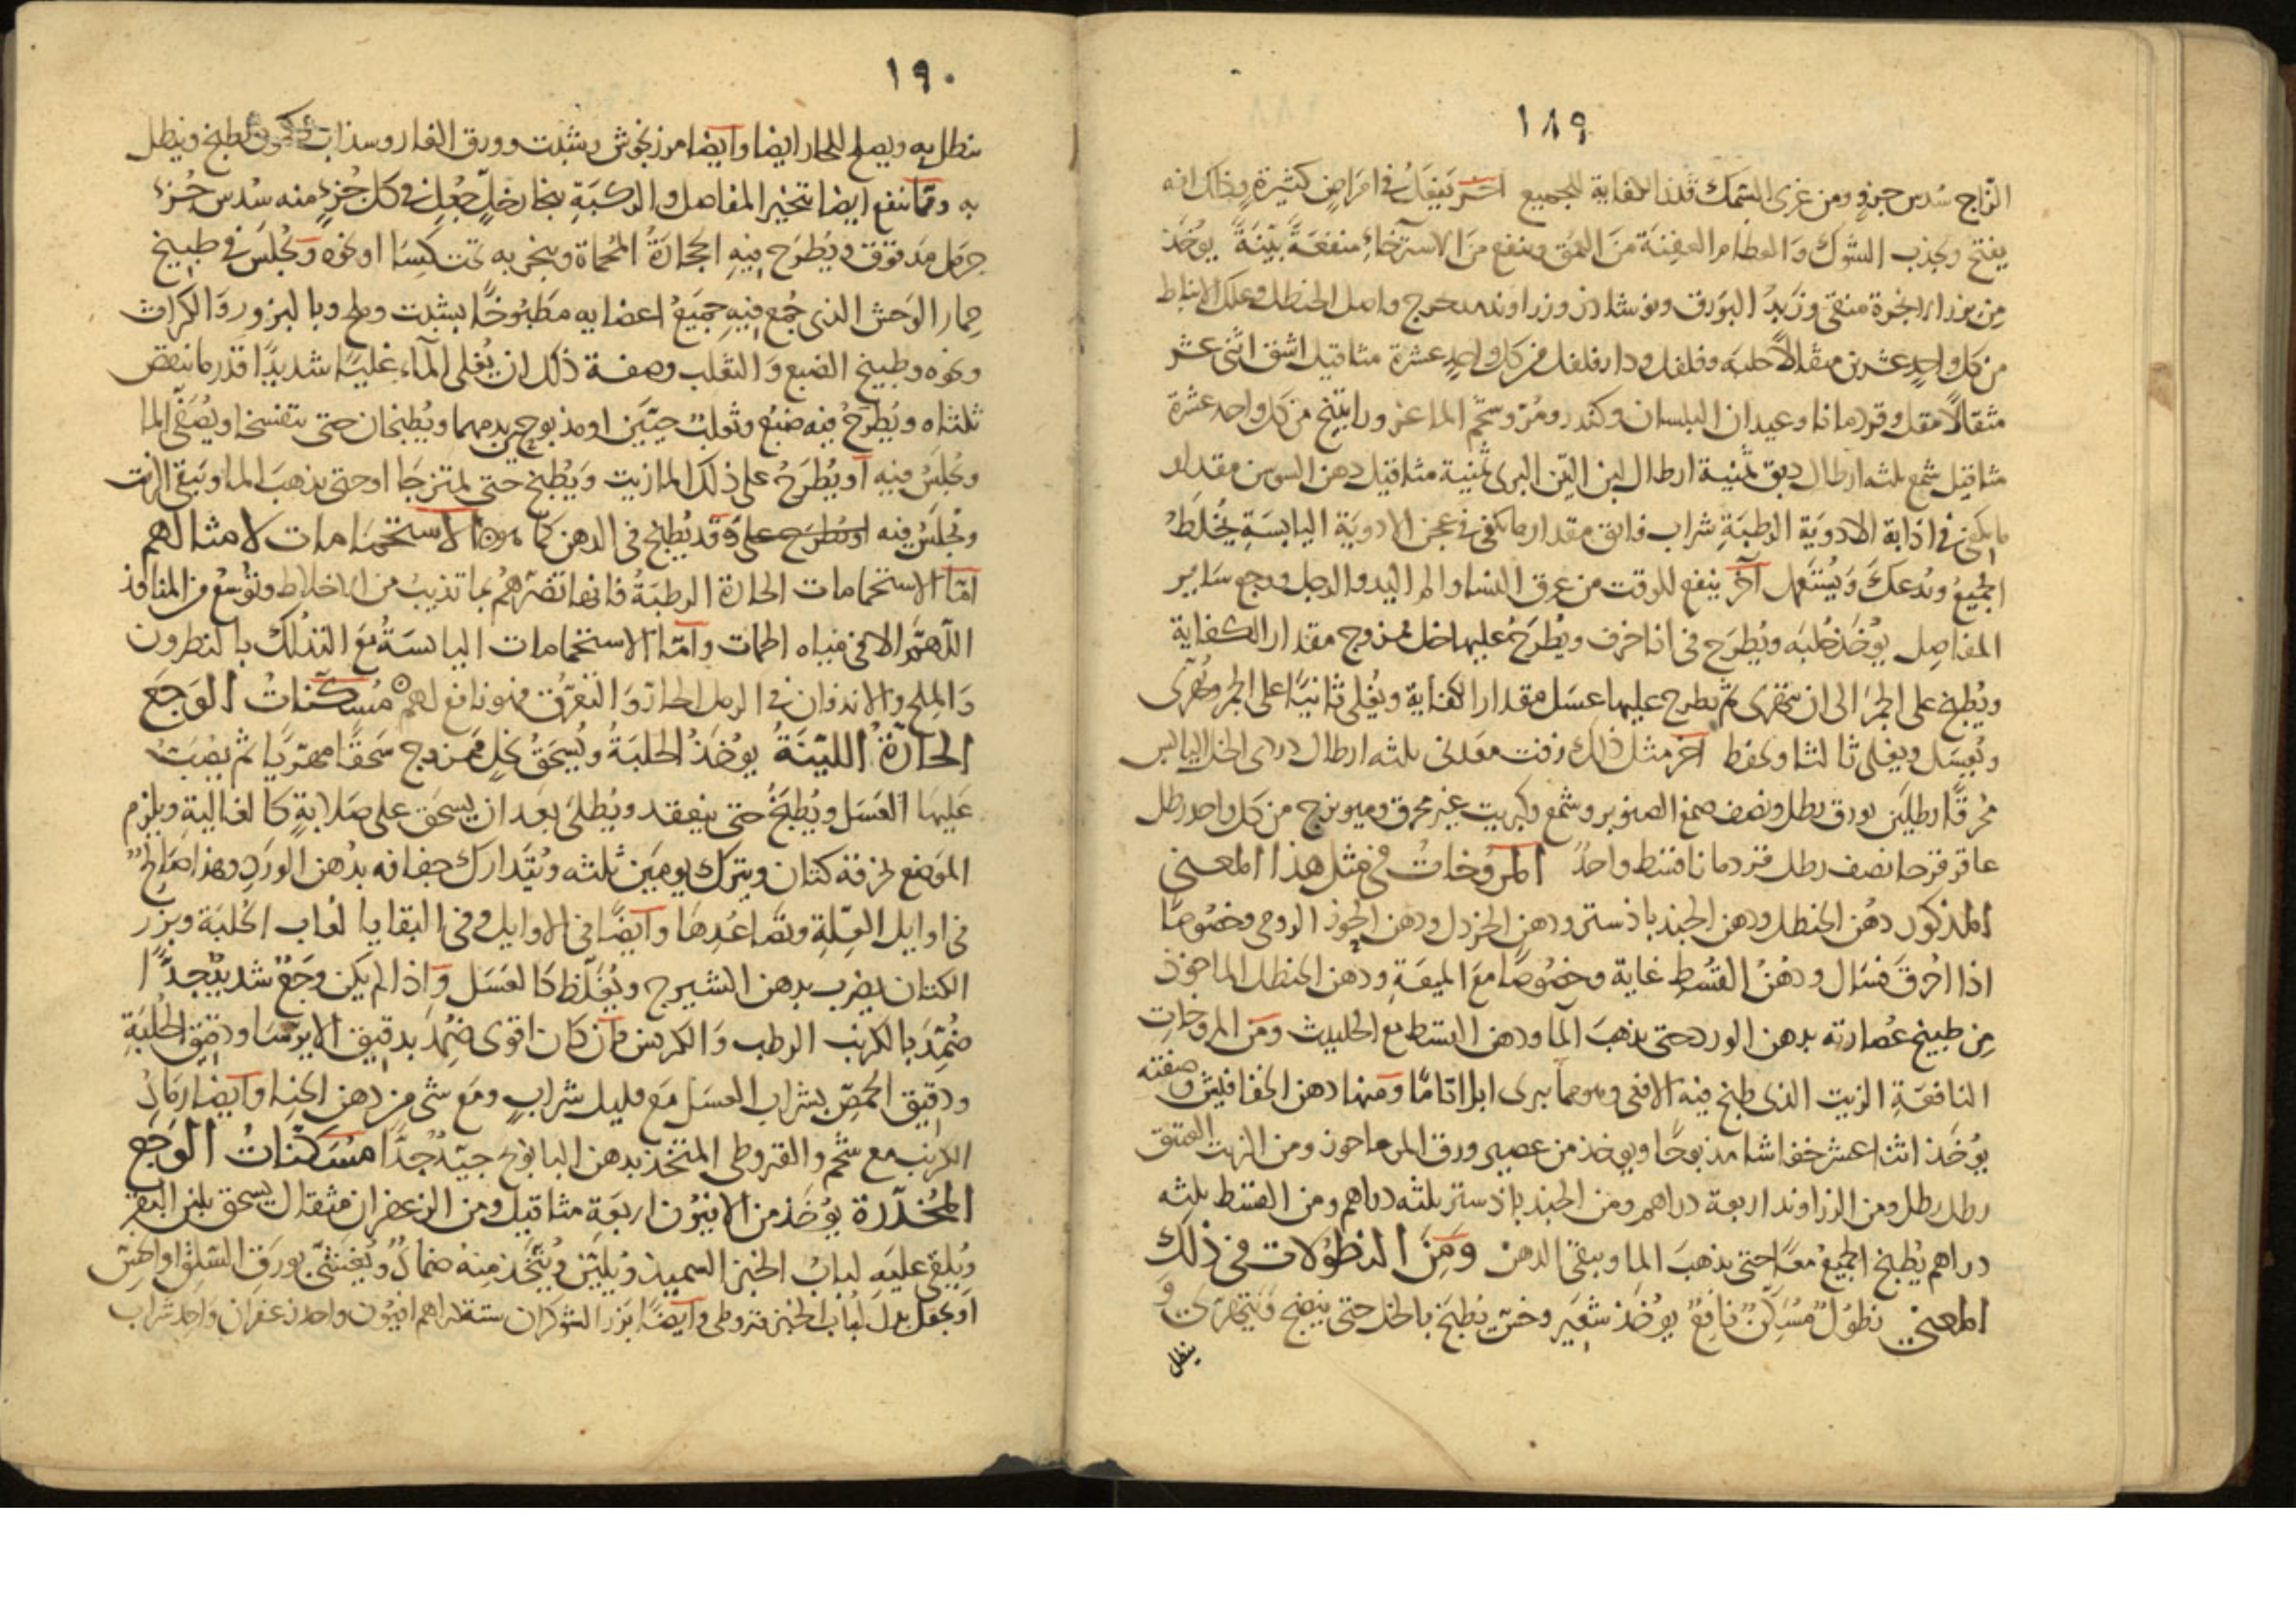 ١٨٩
الزاج سُدس جزؤ ومن غرى السمك قدر الكفاية للجميع آخر يَفعَل في امرَاضٍ كثيرةٍ وذلك انه
يفتح ويجذب الشوك وَالعظام العفِنَة منَ العُمق وينفع منَ الاسترخاءِ منفعَةً بيّنَةً يوُخَذ
مِن بزر الانجرة منقى وزَبدُ البَورَق ونوشاذر وزراوند مدحرج واصل الحنظل وعلك الانباط
من كل واحدٍ عشرين مثقالاً حلبه وفلفل ودار فلفل من كل واحدٍ عشرة مثاقيل اشق اثنى عشر
مثقالًا مقل وقردمانا وعيدان البلسان وكندر ومُرّ وشحم الماعز وراتينج من كل واحد عشرة
مثاقيل شمع ثلثه ارطال دبق ثمنية ارطال لبن التين البرى ثمنية مثاقيل دهن السوسن مقدار
ما يكفى في اذابة الادويَة الرطبَةِ شراب فائق مقدار ما يكفى في عجن الادويَةِ اليابسَةِ يُخلَط
الجميعُ ويُدعَكَ وَيُستَعمل آخر ينفع للوقت من عرق النسا والم اليد والرجل ووجع سَاير
المفاصِل يوُخَذ حُلبَه ويُطرَح فى انا خزف ويُطرَحُ عليها خل ممزوج مقدار الكفاية
ويُطبخ على الجمرَ الى ان يتهرى ثم يطرح عليها عسَل مقدار الكفاية ويُغلى ثانيًا على الجمر ويُهرّى
ويُعسَل ويغلى ثالثا ويحفظ آخر مثل ذلك زفت معدنى ثلثه ارطال دردى الخل اليابس
مُحرقًا رطلَين بورق رطل ونصف صمغ الصنوبر وشمع وكبريت غير محرق وميويزج من كل واحد رطل
عاقرقرحا نصف رطل قردمانا قسط واحدٌ المروّخاتُ فى مثل هذا المعنى
المذكور دهُن الحنظل ودهن الجندباذستر ودهن الخردل ودهن الجوز الرومى وخصُوصًا
اذا اُحرِقَ فسَال ودهُنُ القسُط غاية وخصُوصًا معَ الميعَةِ ودهن الحنظل الماخوذ
مِن طبيخ عصارته بدهن الورد حتى يذهبَ المآ ودهن القسط مع الحليث ومِن المروخاتِ
النافعَةِ الزيت الذى طبخ فيه الافعى وهو مما يبرى ابراءً تامًا ومنها دهن الخفافيش وصفته
يوُخَذ اثنا عشر خفاشا مذبوحًا ويوخذ من عصير ورق المرماحوز ومن الزيت العتيق
رطل رطل ومن الزراوند اربعة دراهم ومن الجندباذستر ثلثه دراهم ومن القسط ثلثه
دراهم يُطبخ الجميعُ معًا حتى يذهبَ الما ويبقى الدهن ومِنَ النطُولات فى ذلك
المعنى نطُولٌ مُسَكّنٌ نافِعٌ يوُخَذ شعَير وخسّ يُطبخ بالخل حتى ينضج ويتهرى و
ينطل
١٩٠
ينطل به ويصلح للحار ايضا وآيضا مرزنجوش وشبت وورق الغار وسذاب يُطبخ وينطل
به ومّما ينفع ايضا تبخير المفاصل والركبَةِ ببخار خلٍّ جُعل في كل جُزءٍ منه سُدس جُزء
حرمل مَدقوق ويُطرَح فيهِ الحجَارَةُ المُحمَاة ويبخر به تحت كِسَا او نحوه وَيُجلَسَ في طبيخ
حِمار الوَحش الذى جُمع فيهِ جميَعُ اعضايه مَطبُوخًا بشبت وملح وبالبزور وَالكراث
ونحوه وطبيخ الضبع وَالثعلب وصفة ذلك ان يُغلى المآء غليًا شديدًا قدر ما ينقص
ثلثاه ويُطرَحُ فيه ضبعُ وثعلبُ حيّيَن او مذبوحين بدمهما ويُطبخان حتى يتفسخا ويُصَفّى الما
ويُجلَسُ فيهِ آو يُطرَحُ على ذلكَ الما زيت وَيُطبخ حتى يمتزجَا او حتى يذهبَ الما ويَبقى الزيت
ويُجلَسَ فيه او يُطرَح على وقَد يُطبخ فى الدهن كما هو الاستحمَامات لامثالهم
امّا الاستحمامات الحارة الرطبَةُ فانها تضرّهُمُ بما تذيبُ من الاخلاط وتوُسعُ من المنافذ
اللّهمَّ الا فى مياه الحمات وآمّا الاستحمامات اليابسَةُ مَع التدلك بالنطرون
وَالملح والاندفان في الرمل الحارّ وَالتعرّق فهو نافع لهم مُسكّناتُ الوَجَع
الحَارّةُ الليّنةُ يوُخَذُ الحلبَةُ ويُسحَقُ بخلٍ ممزوج سَحقًا مهرّيًا ثم يصَبّ
عَليهَا العَسَل ويُطبَخُ حتى ينعقد ويُطلَى بعَد ان يسحَق على صَلابةٍ كالغاليةِ ويلزم
الموَضع بخرقة كتان ويترك يومَين ثلثه ويُتَدارك جفافه بدُهن الورَد وهذا صَالحٌ
فى اوايل العِلّةِ وتصَاعُدِهَا وآيضًا فى الاوايل وفى البقايا لعُاب الحُلبَة وبزر
الكتان يضرب بدهن الشيرج ويُغَلّظ كَالعَسَل وَاذا لم يكن وَجَعٌ شديدٌ جدًّا
ضُمِّدَ بالكرنب الرطب وَالكرفس فآن كان اقوى ضِمُدَ بدقيق الايرسَا ودقيق الحُلبَةِ
ودقيق الحمّص بشراب العسَل مَع قليل شرابٍ ومَع شى من دهن الحنا وآيضا رمَادُ
الكرنب مع شحم والقيروطى المتخّذ بدهن البابونج جيّدٌ جدًّا مُسَكّناتُ الوَجَع
المُخدّرة يوُخَذ من الافيُون اربعَة مثاقيل ومن الزعفران مثقال يسحق بلبن البقر
ويُلقى عليَه لبابُ الخبز السميذ ويُليّن ويُتّخَذ مِنهُ ضمادٌ ويُغشّى بورَق السّلق او الخسّ
اوَ يجعَل بدلَ لُباب الخبز قيروطى وآيضًا بزر الشوكران ستة دراهم افيُون واحد زعفران واحد شراب